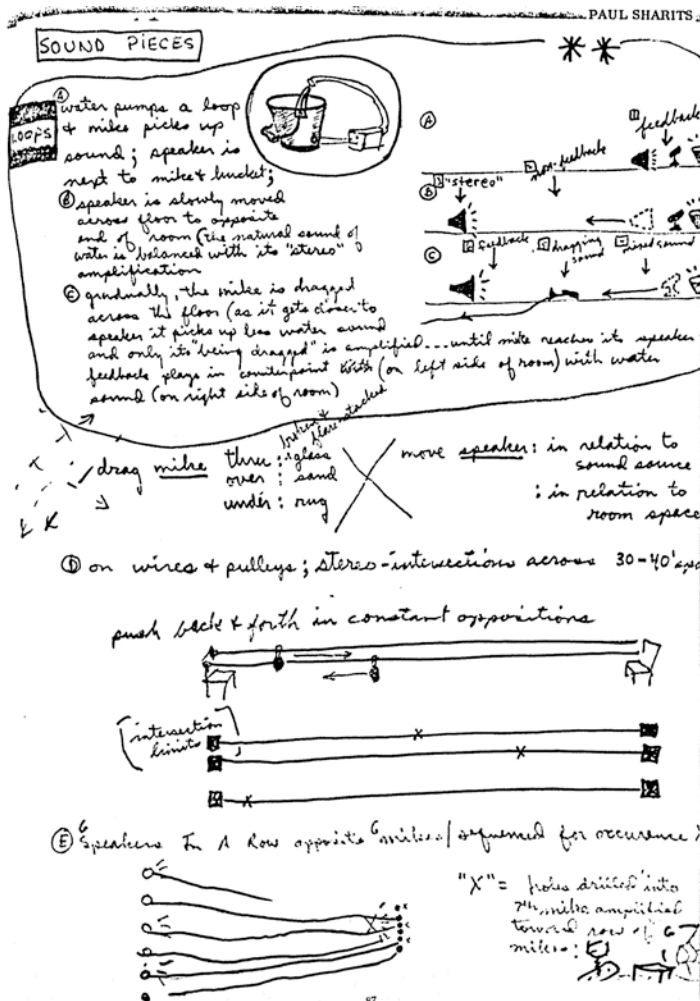 PAUL SHARITS
SOUND PIECES
LOOPS
Ⓐ water pumps a loop
& mike picks up
sound; speaker is
next to mike & bucket;
Ⓑ speaker is slowly moved
across floor to opposite
end of room (the natural sound of
water is balanced with its "stereo"
amplification
Ⓒ gradually, the mike is dragged
across the floor (as it gets closer to
speaker it picks up less water sound
and only its "being dragged" is amplified... until mike reaches its speaker
feedback plays in counterpoint (on left side of room) with water
sound (on right side of room)
Ⓐ
feedback
non-feedback
Ⓑ
"stereo"
Ⓒ
feedback
dragging
sound
mixed sound
drag mike thru : broken & glass
over : sand
under : rug
move speaker : in relation to
sound source
: in relation to
room space
Ⓓ on wires & pulleys; stereo-intersections across 30-40'
push back & forth in constant oppositions
(intersection
limits)
Ⓔ 6 Speakers In A Row opposite 6 mikes / sequenced for occurence
"X" = holes drilled into
7th mike amplified
toward row of 6
mikes: